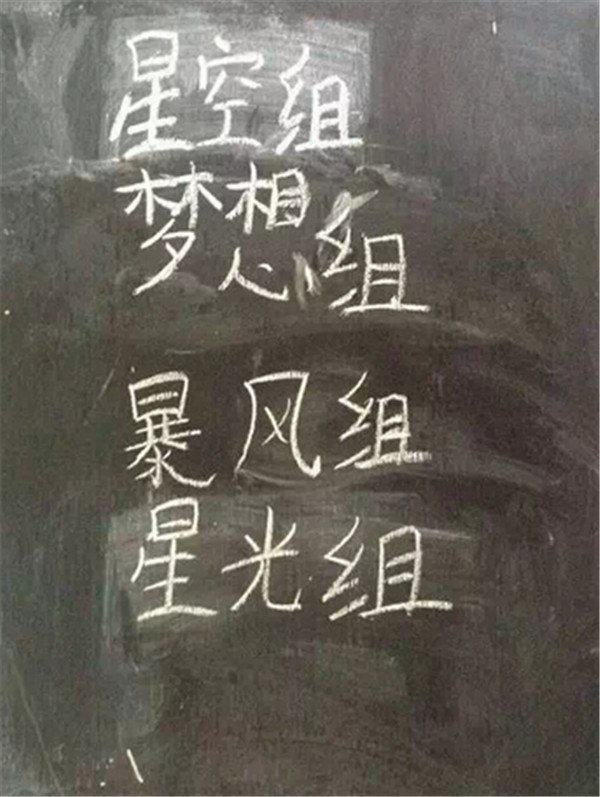 星空组
梦想组
暴风组
星光组